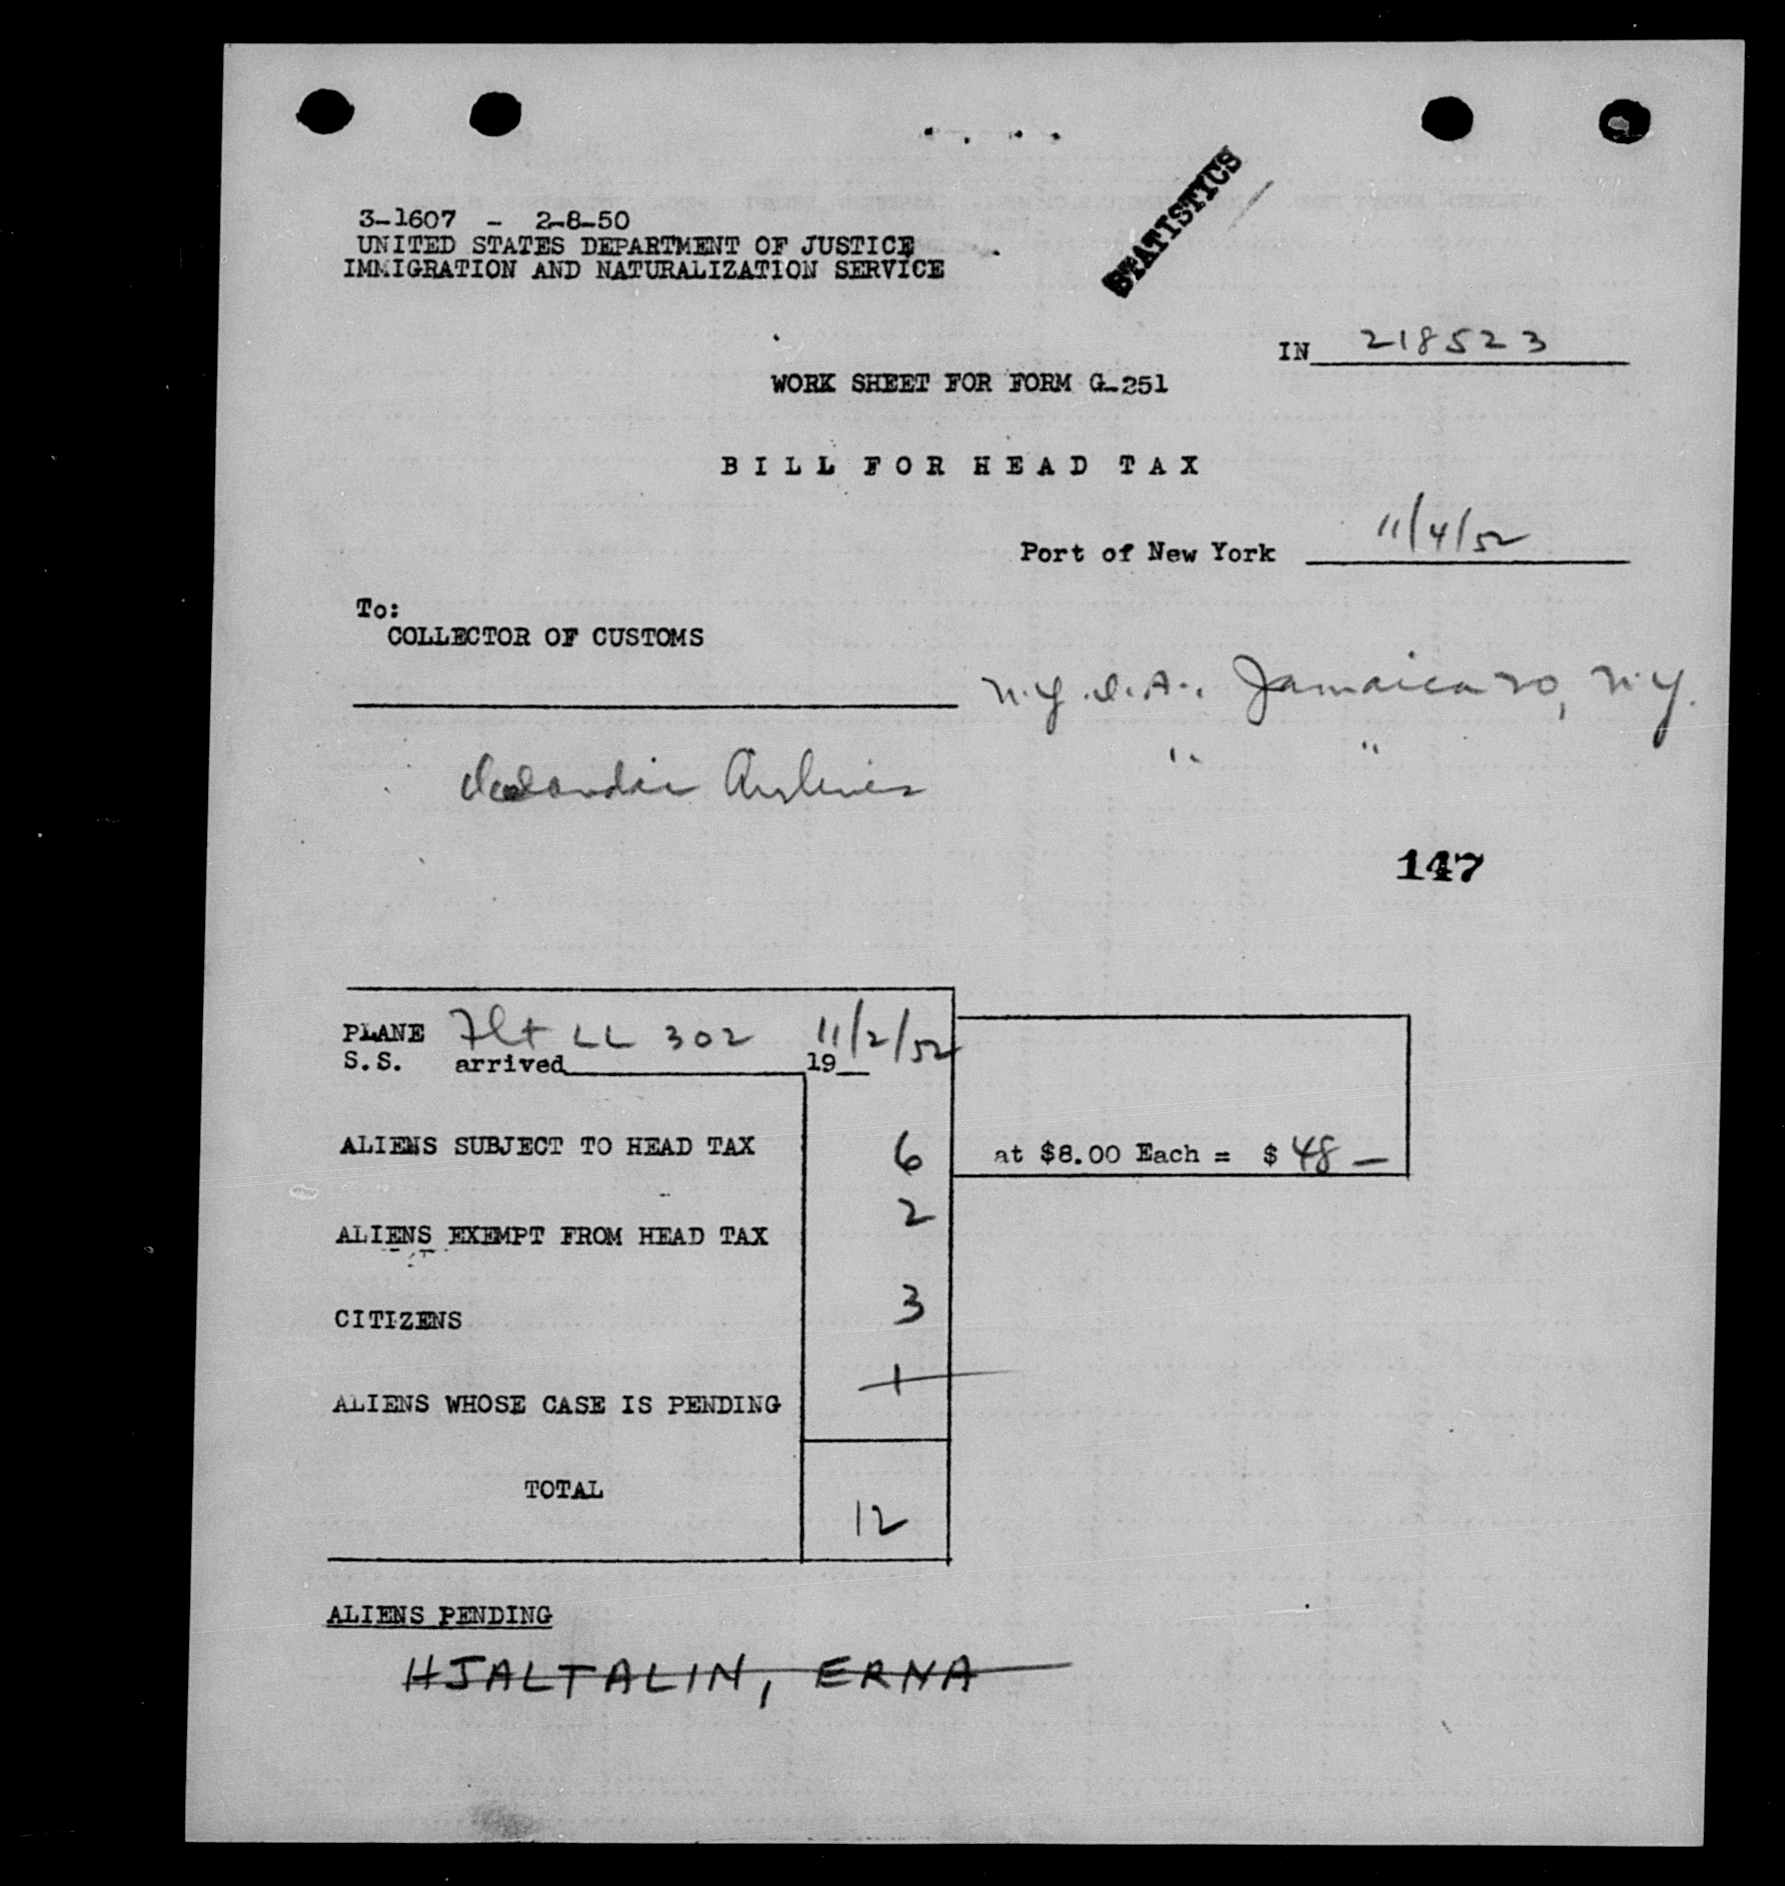 STATISTICS
3-1607 - 2-8-50
UNITED STATES DEPARTMENT OF JUSTICE
IMMIGRATION AND NATURALIZATION SERVICE
IN 218523
WORK SHEET FOR FORM G-251
BILL FOR HEAD TAX
Port of New York 11/4/52
To:
COLLECTOR OF CUSTOMS
N.Y.I.A., Jamaica 20, N.Y.
Icelandic Airlines " "
147
PLANE Flt LL 302 11/2/52
S.S. arrived 19
ALIENS SUBJECT TO HEAD TAX 6 at $8.00 Each = $ 48 —
ALIENS EXEMPT FROM HEAD TAX 2
CITIZENS 3
ALIENS WHOSE CASE IS PENDING 1
TOTAL 12
ALIENS PENDING
HJALTALIN, ERNA